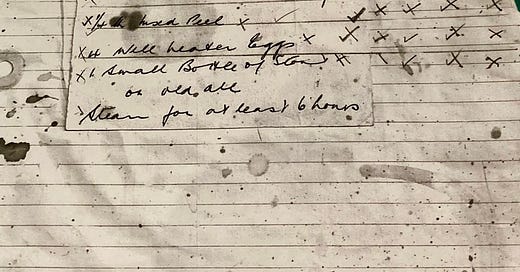 x 1/4 lb Mixed Peel x ✓ ✓ x ✓ x x
x 4 Well beaten Eggs x x x ✓ x x
x 1 Small Bottle of Stout x x x ✓ x x
or old ale
Steam for at least 6 hours